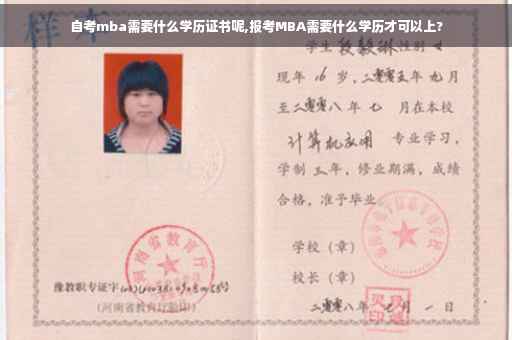 自考mba需要什么学历证书呢,报考MBA需要什么学历才可以上?
样本
学生段毅琳性别女
现年16岁，二零零五年九月
至二零零八年七 月在本校
计算机应用 专业学习，
学制三年，修业期满，成绩
合格，准予毕业。
学校（章）
校长（章）
二零零八年七月一日
河南省教育厅
豫教职专证字
（河南省教育厅验印）